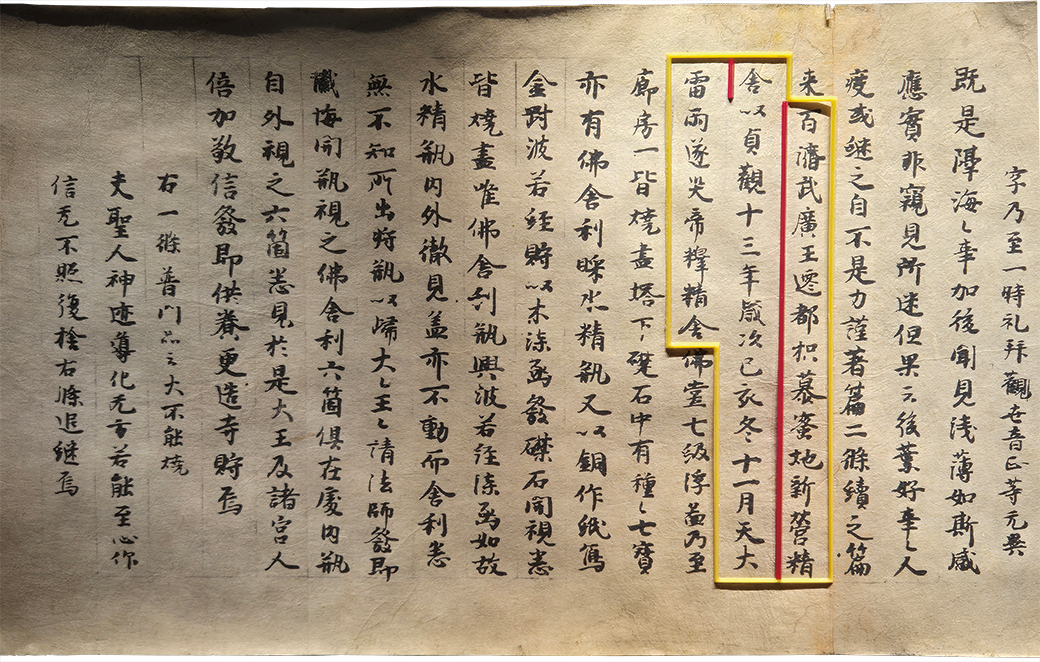 字乃至一時礼拜觀世音正等无異
既是隔海〻事加後聞見浅薄如斯感
應實非窺見所迷但杲云後葉好事〻人
疫或继之自不是力謹著篇二條續之篇
末百濟武廣王遷都枳慕蜜地新營精
舍以貞觀十三年歳次己亥冬十一月天大
雷雨遂災帝釋精舍佛堂七級浮啚乃至
廊房一皆燒盡塔下礎石中有種〻七寶
亦有佛舍利睬水精瓶又以銅作紙寫
金剛波若經貯以木漆函發礎石開視悉
皆燒盡唯佛舍利瓶與波若經漆函如故
水精瓶內外徹見盖亦不動而舍利悉
無不知所出將瓶以歸大〻王〻請法師發即
懺悔開瓶視之佛舍利六箇俱在處內瓶
自外視之六箇悉見於是大王及諸宮人
倍加敬信發即供養更造寺貯焉
右一條普門品云火不能燒
夫聖人神迹導化无方若能至心作
信无不照後捨右條追继焉